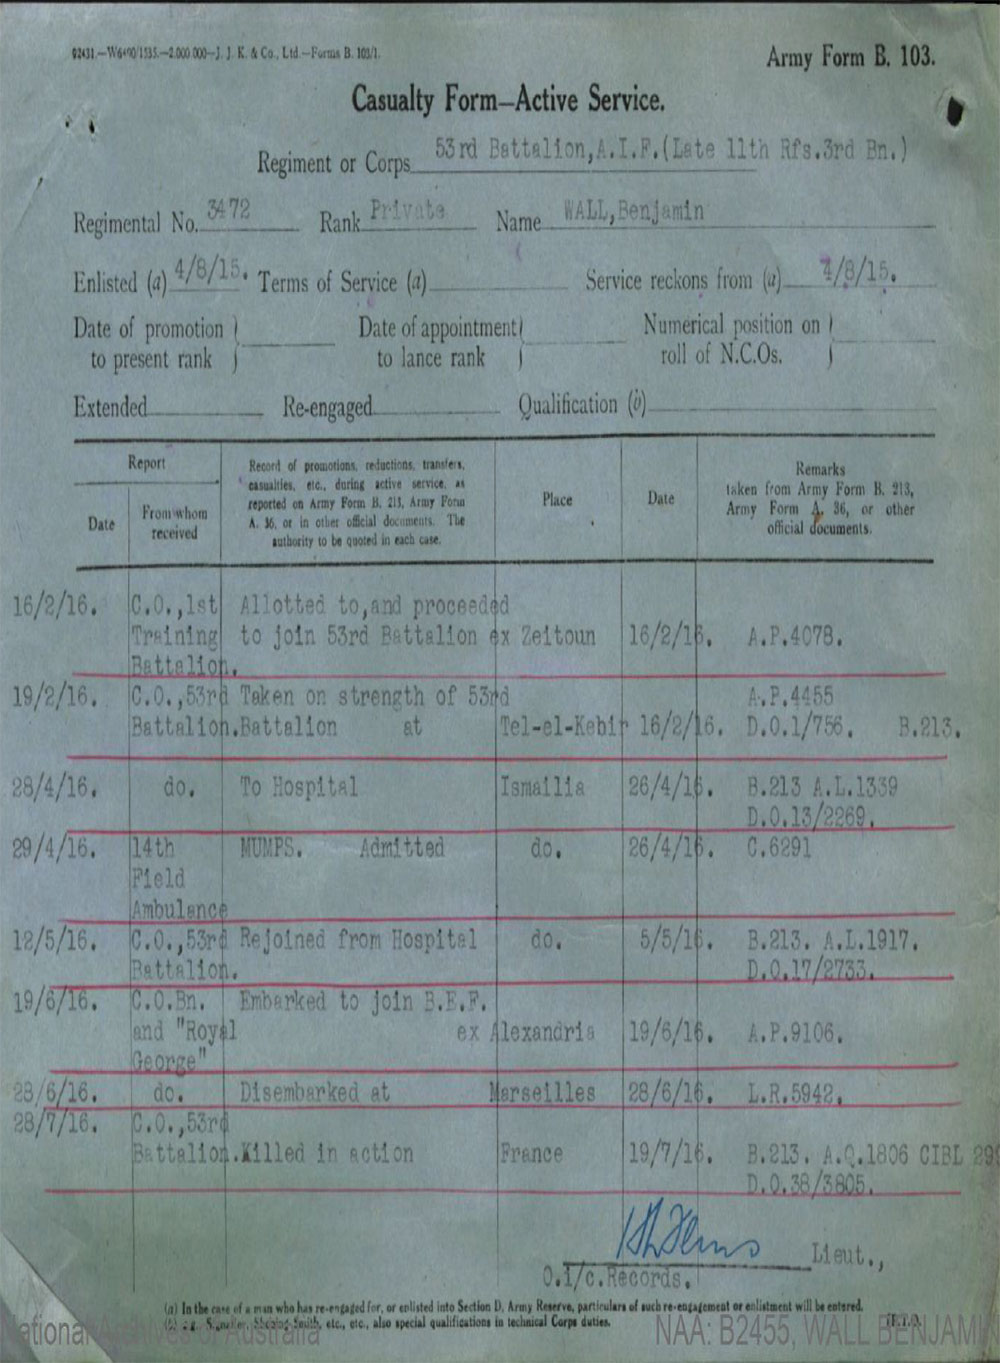 92431.—W6490/1535.—2.000.000—J. J. K. & Co., Ltd.—Forms B. 103/1.
Army Form B. 103.
Casualty Form—Active Service.
Regiment or Corps 53rd Battalion,A.I.F.(Late 11th Rfs.3rd Bn.)
Regimental No. 3472 Rank Private Name WALL,Benjamin
Enlisted (a) 4/8/15. Terms of Service (a) Service reckons from (a) 4/8/15.
Date of promotion to present rank } Date of appointment to lance rank } Numerical position on roll of N.C.Os. }
Extended Re-engaged Qualification (b)
Report
Date
From whom received
Record of promotions, reductions, transfers,
casualties, etc., during active service, as
reported on Army Form B. 213, Army Form
A. 36, or in other official documents. The
authority to be quoted in each case.
Place
Date
Remarks
taken from Army Form B. 213,
Army Form A. 36, or other
official documents.
16/2/16. C.O.,1st Allotted to,and proceeded
Training to join 53rd Battalion ex Zeitoun 16/2/16. A.P.4078.
Battalion.
19/2/16. C.O.,53rd Taken on strength of 53rd A.P.4455
Battalion.Battalion at Tel-el-Kebir 16/2/16. D.O.1/756. B.213.
28/4/16. do. To Hospital Ismailia 26/4/16. B.213 A.L.1339
D.O.13/2269.
29/4/16. 14th MUMPS. Admitted do. 26/4/16. C.6291
Field
Ambulance
12/5/16. C.O.,53rd Rejoined from Hospital do. 5/5/16. B.213. A.L.1917.
Battalion. D.O.17/2733.
19/6/16. C.O.Bn. Embarked to join B.E.F.
and "Royal ex Alexandria 19/6/16. A.P.9106.
George"
28/6/16. do. Disembarked at Marseilles 28/6/16. L.R.5942.
28/7/16. C.O.,53rd
Battalion.Killed in action France 19/7/16. B.213. A.Q.1806 CIBL 299
D.O.38/3805.
Lieut.,
O.i/c.Records.
(a) In the case of a man who has re-engaged for, or enlisted into Section D, Army Reserve, particulars of such re-engagement or enlistment will be entered.
(b) e.g. Signaller, Shoeing-Smith, etc., etc., also special qualifications in technical Corps duties. [P.T.O.
National Archives of Australia NAA: B2455, WALL BENJAMI